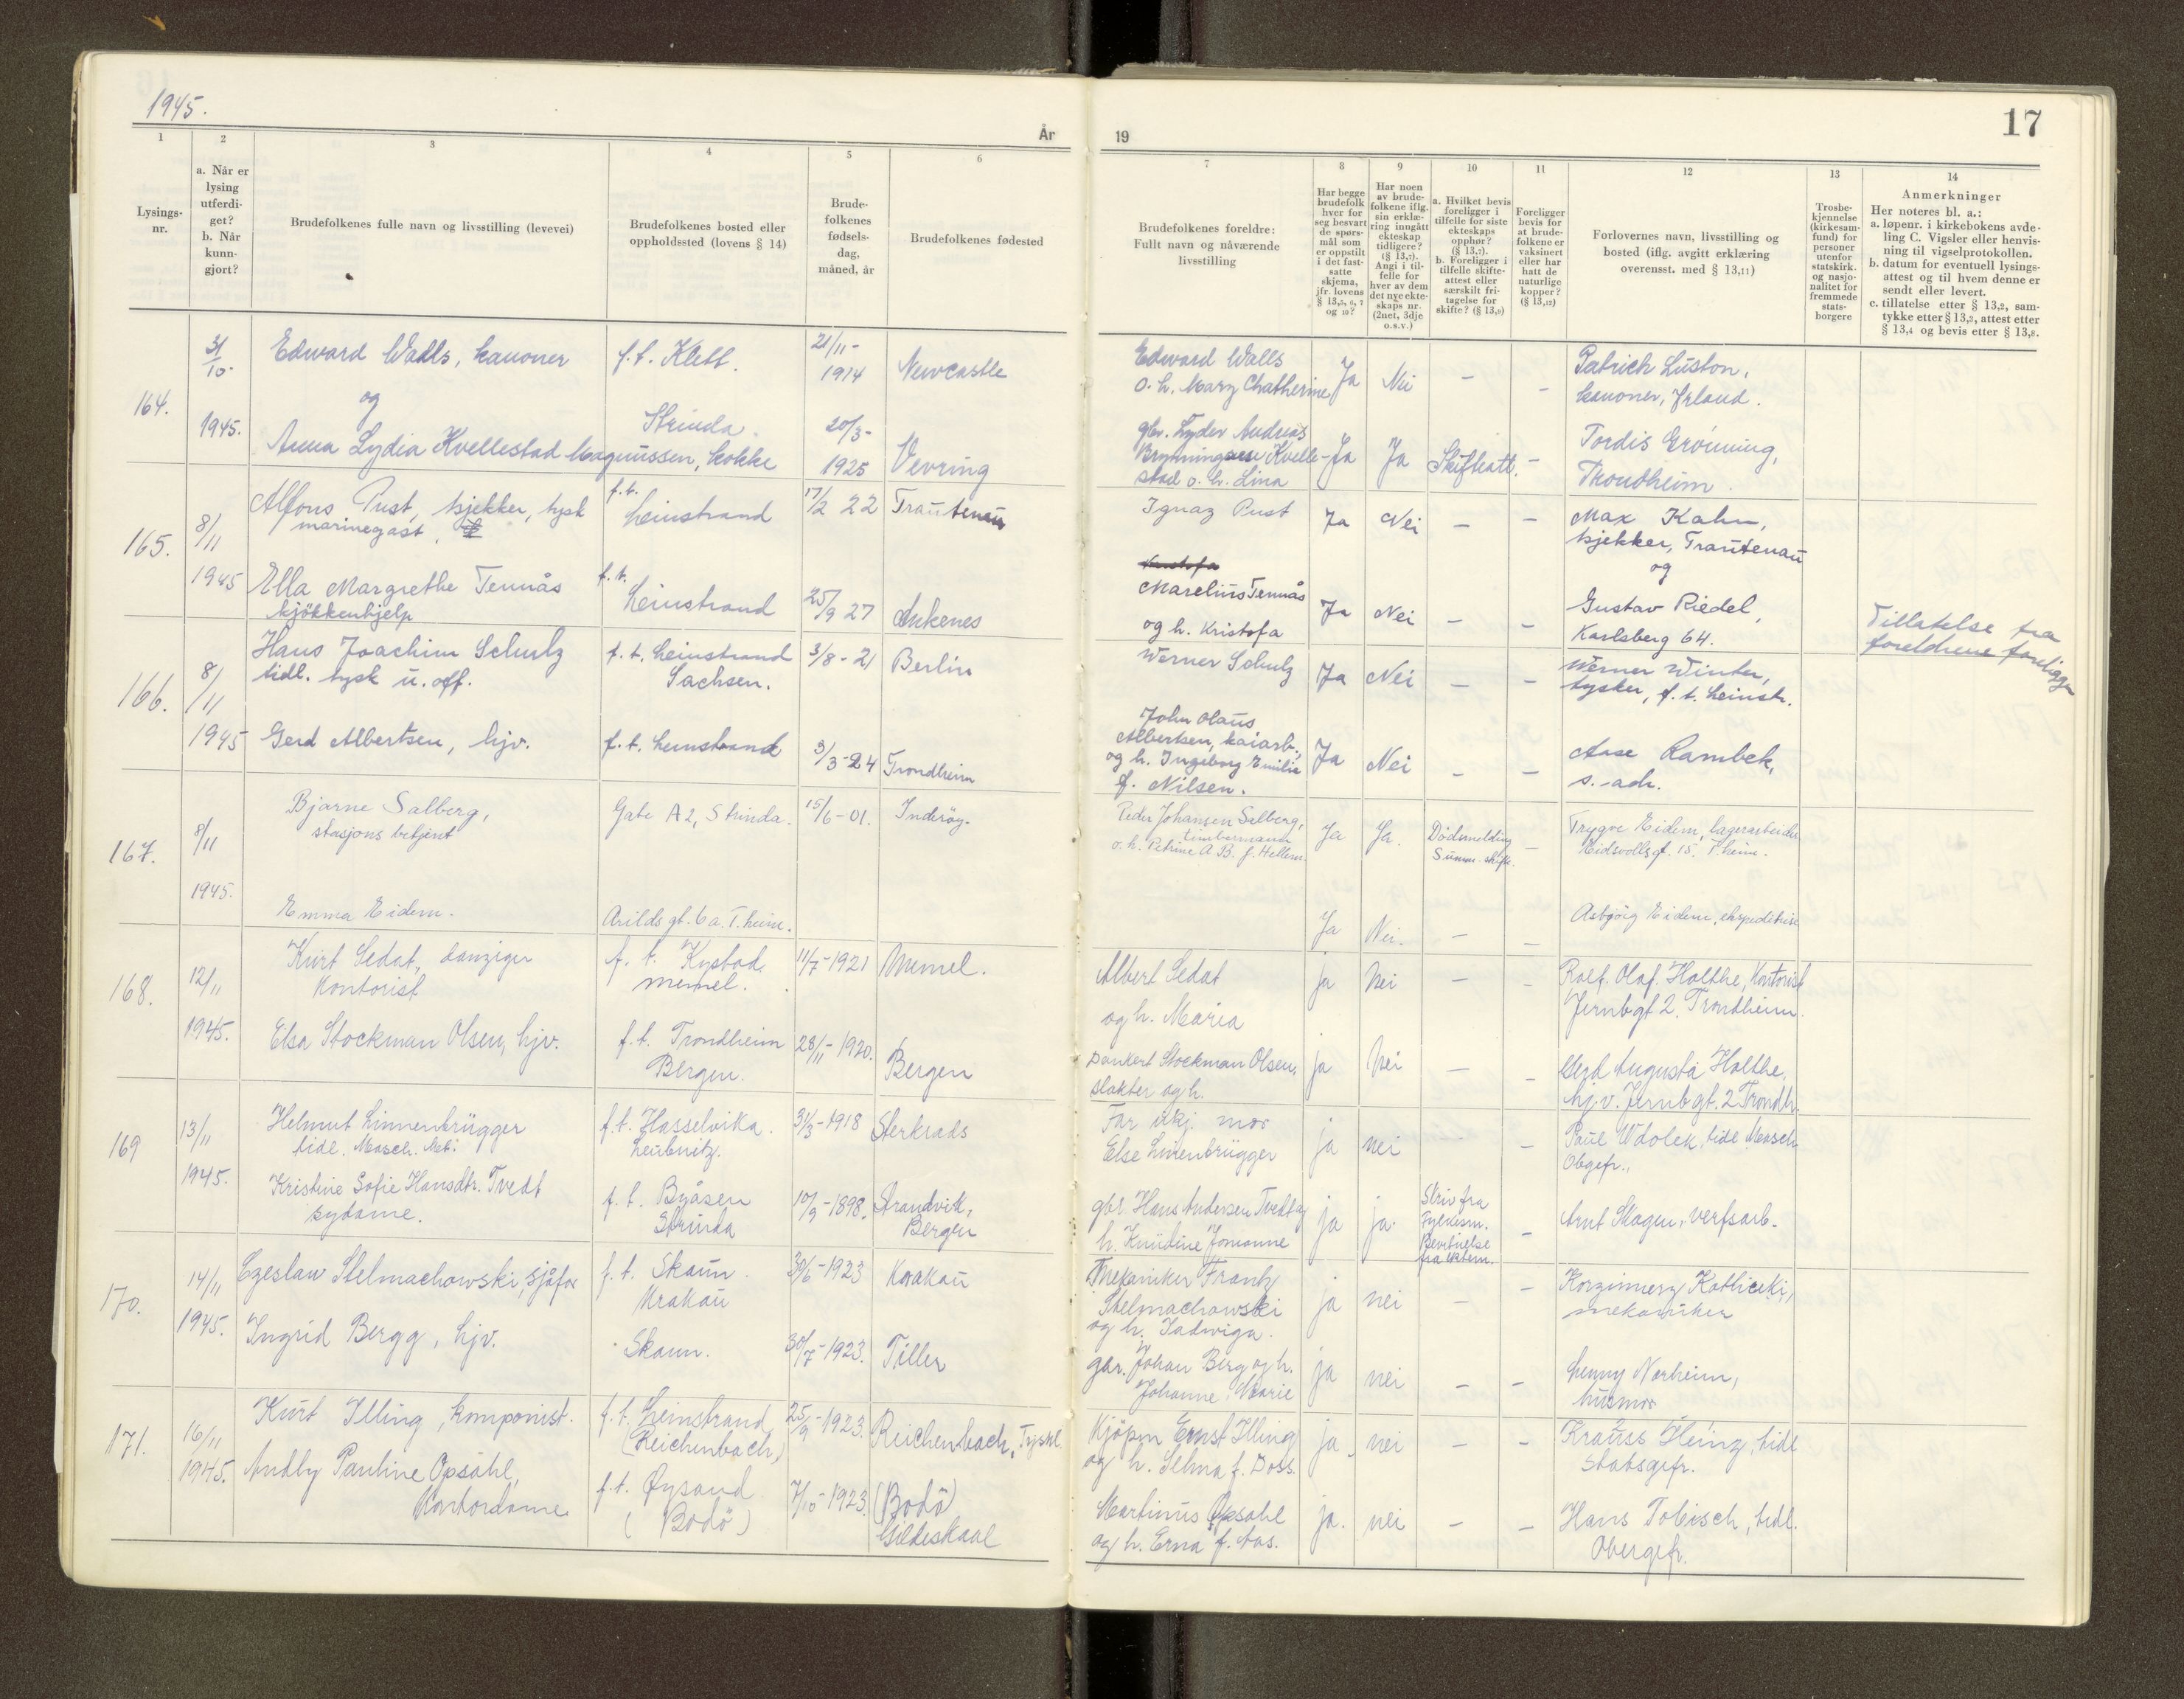 1945.
År
19
17
1
2
3
4
5
6
7
8
9
10
11
12
13
14
Lysings-
nr.
a. Når er
lysing
utferdi-
get?
b. Når
kunn-
gjort?
Brudefolkenes fulle navn og livsstilling (levevei)
Brudefolkenes bosted eller
oppholdssted (lovens § 14)
Brude-
folkenes
fødsels-
dag,
måned, år
Brudefolkenes fødested
Brudefolkenes foreldre:
Fullt navn og nåværende
livsstilling
Har begge
brudefolk
hver for
seg besvart
de spørs-
mål som
er oppstilt
i det fast-
satte
skjema,
jfr. lovens
§ 13,5, 6, 7
og 10?
Har noen
av brude-
folkene iflg.
sin erklæ-
ring inngått
ekteskap
tidligere?
(§ 13,7).
Angi i til-
felle for
hver av dem
det nye ekte-
skaps nr.
(2net, 3dje
o.s.v.)
a. Hvilket bevis
foreligger i
tilfelle for siste
ekteskaps
opphør?
(§ 13,7).
b. Foreligger i
tilfelle skifte-
attest eller
særskilt fri-
tagelse for
skifte? (§ 13,9)
Foreligger
bevis for
at brude-
folkene er
vaksinert
eller har
hatt de
naturlige
kopper?
(§ 13,12)
Forlovernes navn, livsstilling og
bosted (iflg. avgitt erklæring
overensst. med § 13,11)
Trosbe-
kjennelse
(kirkesam-
fund) for
personer
utenfor
statskirk.
og nasjo-
nalitet for
fremmede
stats-
borgere
Anmerkninger
Her noteres bl. a.:
a. løpenr. i kirkebokens avde-
ling C. Vigsler eller henvis-
ning til vigselprotokollen.
b. datum for eventuell lysings-
attest og til hvem denne er
sendt eller levert.
c. tillatelse etter § 13,2, sam-
tykke etter § 13,3, attest etter
§ 13,4 og bevis etter § 13,8.
164.
31/10.
1945.
Edward Walls, kanoner
f.t. Klett.
21/11-
1914
Newcastle
Edward Walls
o. h. Mary Chatherine
Ja
Nei
-
-
Patrich Luston,
kanoner, Irland.
og
Anna Lydia Kvellestad Magnussen, kokke
Strinda.
20/3-
1925
Vevring
gbr. Lyder Andreas
Brynningsen Kvelle-
stad o. h. Lina
Ja
Ja
Skifteatt.
-
Tordis Grönning,
Trondheim.
165.
8/11
1945
Alfons Pust, kjekker, tysk
marinegast,
f.t.
Leinstrand
17/2 22
Trautenau
Ignaz Pust
Ja
Nei
-
-
Max Kahn,
kjekker, Trautenau
og
Ella Margrethe Tennås
kjökkenhjelp
f.t.
Leinstrand
25/9 27
Ankenes
Kristofa
Marelius Tennås
og h. Kristofa
Ja
Nei
-
-
Gustav Riedel,
Karlsberg 64.
Tillatelse fra
foreldrene foreligger
166.
8/11
1945
Hans Joachim Schulz
tidl. tysk u. off.
f.t. Leinstrand
Sachsen.
3/8-21
Berlin
Werner Schulz
Ja
Nei
-
-
Werner Winter,
tysker, f.t. Leinstr.
Gerd Albertsen, hjv.
f.t. Leinstrand
3/3-24
Trondheim
John Olaus
Albertsen, kaiarb.,
og h. Ingeborg Emilie
f. Nilsen.
Ja
Nei
-
-
Aase Rambek,
s.-adr.
167.
8/11
1945.
Bjarne Salberg,
stasjons betjent
Gate A2, Strinda.
15/6-01.
Inderöy.
Peder Johansen Selberg,
timbermann
o. h. Petrine A B. f. Hellem.
Ja
Ja.
Dödsmelding
Summ. skifte.
-
Trygve Eidem, lagerarbeider
Eidsvollsgt. 15. T.heim.
Emma Eidem.
Arilds gt. 6a. T.heim.
Ja
Nei.
-
-
Asbjörg Eidem, ekspeditrise
168.
12/11
1945.
Kurt Sedat, danziger
Kontorist
f. t. Kystad.
Memel.
11/7-1921
Memel.
Albert Sedat
og h. Maria
ja
nei
-
-
Rolf. Olaf. Holthe, Kontorist
Jernbgt 2. Trondheim.
Elsa Stockman Olsen, hjv.
f.t. Trondheim
Bergen.
28/11-1920.
Bergen
Dankert Stockman Olsen,
slakter og h.
ja
nei
-
-
Gerd Augusta Holthe,
hjv. Jernbgt. 2 Trondh.
169
13/11
1945.
Helmut Linnenbrügger
tidl. Masch. Mt.
f.t. Hasselvika.
Leubnitz.
31/3-1918
Sterkrads
Far ukj. mor
Else Linenbrügger
ja
nei
-
-
Paul Wdolek, tidl Masch
Obgefr..
Kristine Sofie Hansdtr. Tvedt
sydame.
f.t. Byåsen
Strinda
10/9-1898.
Strandvik,
Bergen
gbr. Hans Andersen Tvedt og
h. Knudine Johanne
ja
ja.
Skriv fra
Fylkesm.
Bevitnelse
fra
-
Arnt Skogen, verfsarb.
170.
14/11
1945.
Czeslaw Stelmachowski, sjåför
f.t. Skaun.
Krakau
30/6-1923
Krakau
Mekaniker Frantz
Stelmachowski
og h. Jadwiga.
ja
nei
-
-
Korzimierz Kothicki,
mekaniker
Ingrid Bergg, hjv.
Skaun.
30/7-1923.
Tiller
gbr. Johan Berg og h.
Johanne Marie
ja
nei
-
-
Lenny Norheim,
husmor
171.
16/11
1945.
Kurt Illing, komponist.
f.t. Leinstrand
(Reichenbach)
25/9-1923.
Reichenbach, Tyskl.
Kjöpm Ernst Illing
og h. Selma f. Doss.
ja.
nei
-
-
Krauss Heinz, tidl
Stabsgefr.
Andby Pauline Opsahl,
Kontordame
f.t. Øysand.
(Bodö)
7/10-1923.
(Bodö)
Gildeskaal
Martinus Opsahl
og h. Erna f. Aas.
ja.
nei
-
-
Hans Tobisch, tidl.
Obergefr.